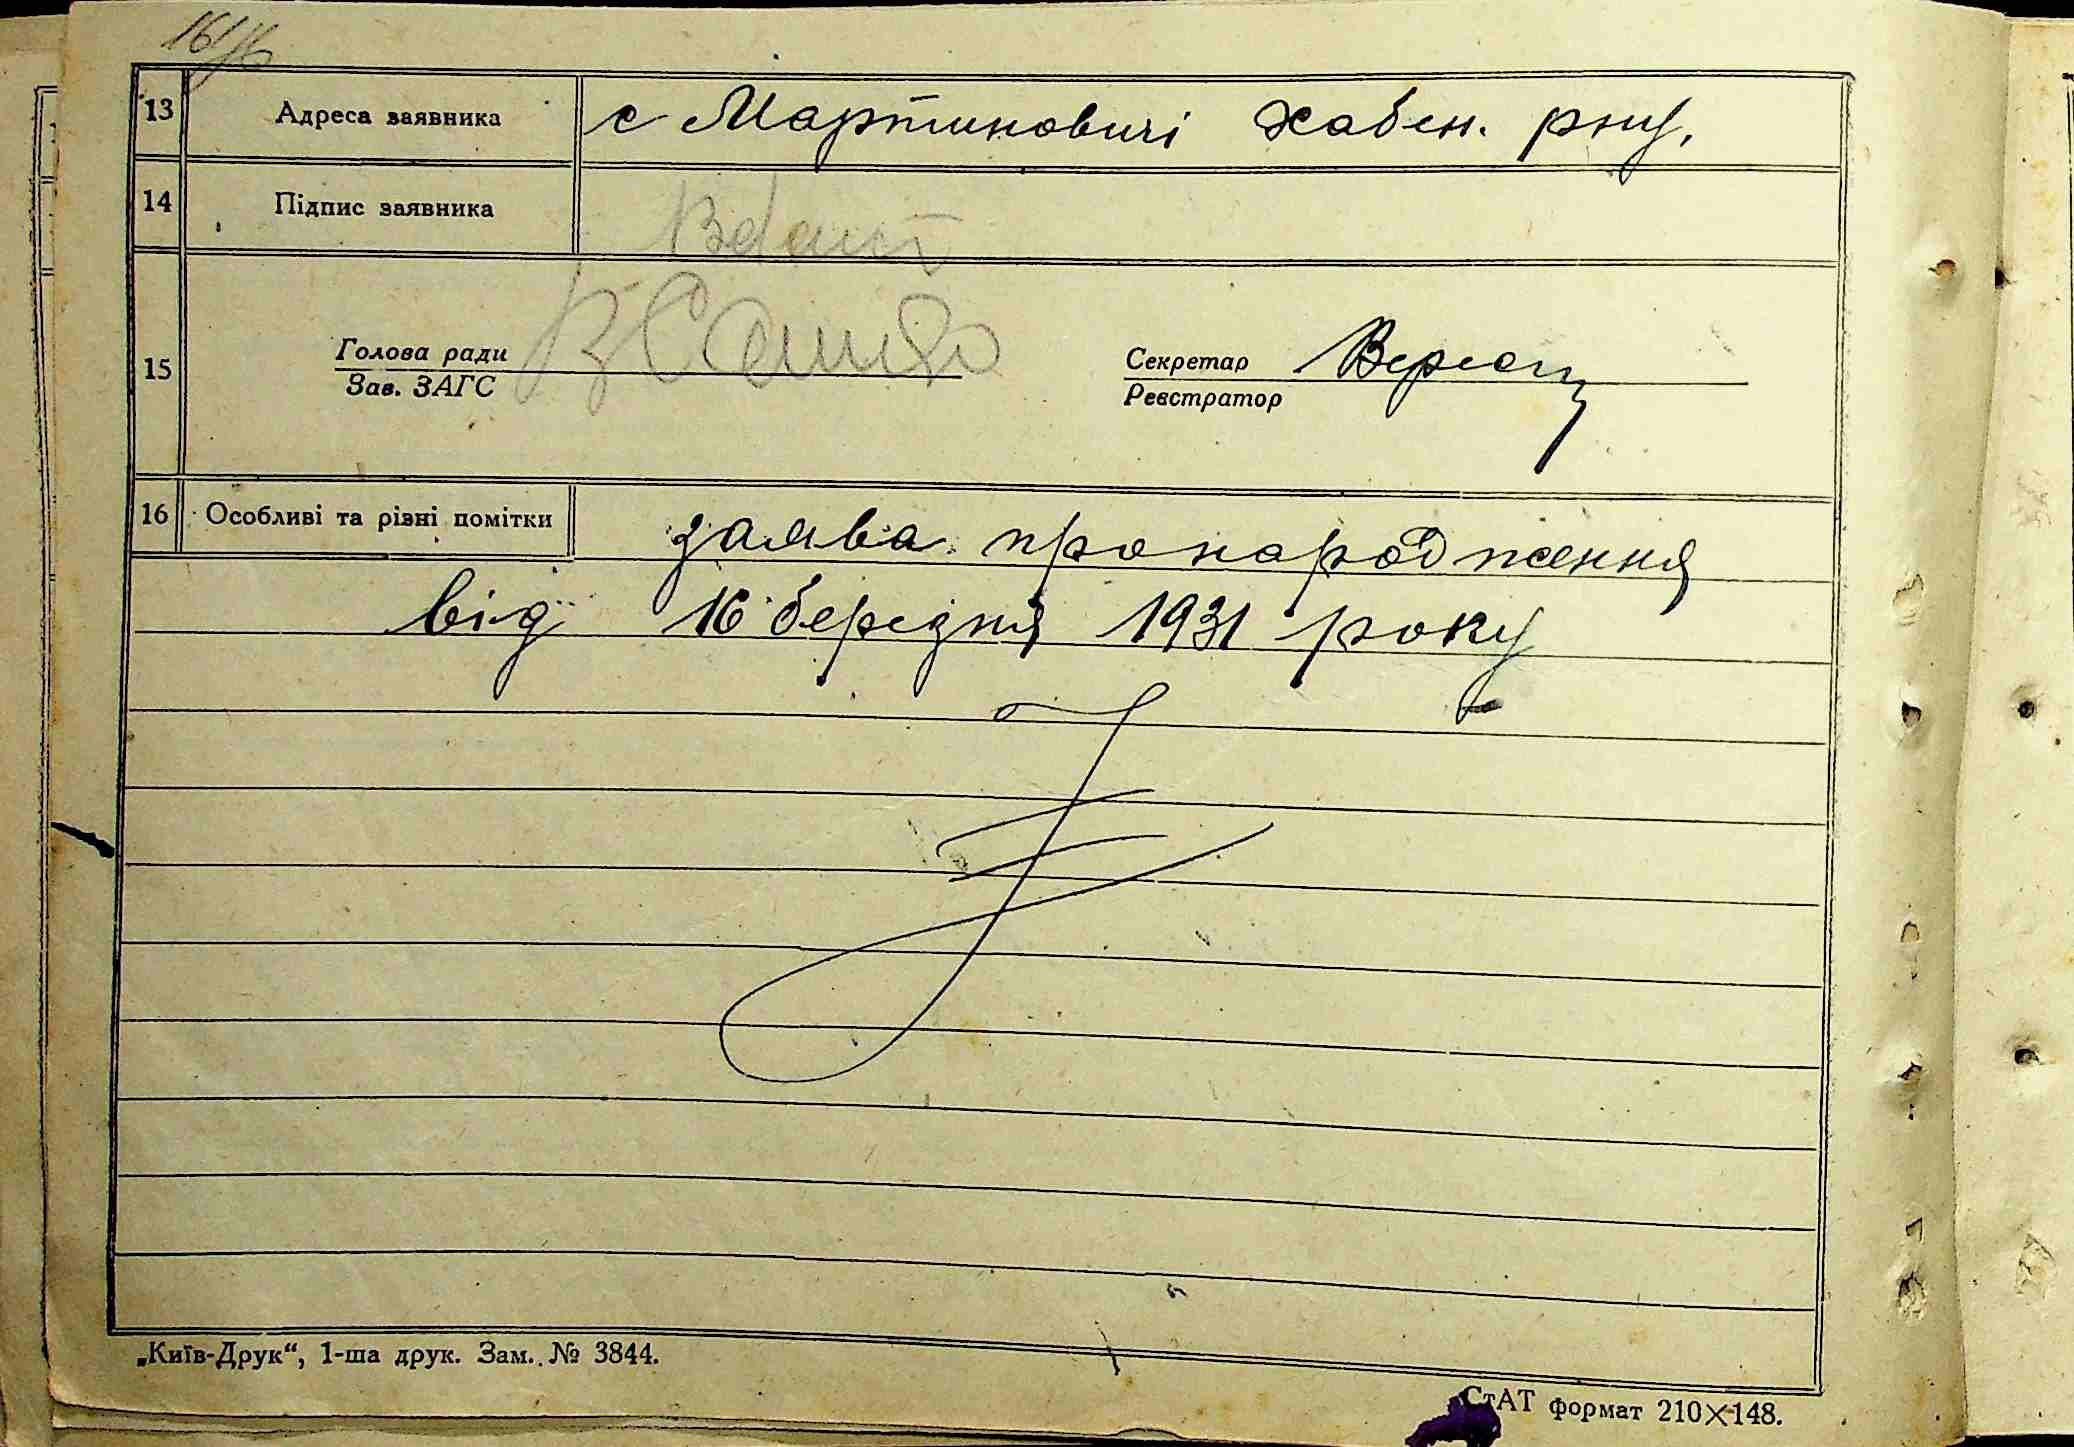 13 Адреса заявника с Мартиновичі Хабен. рну.
14 Підпис заявника
15 Голова ради Секретар
Зав. ЗАГС Реєстратор
16 Особливі та різні помітки заява про народження
від 16 березня 1931 року
„Київ-Друк“, 1-ша друк. Зам. № 3844.
СтАТ формат 210×148.